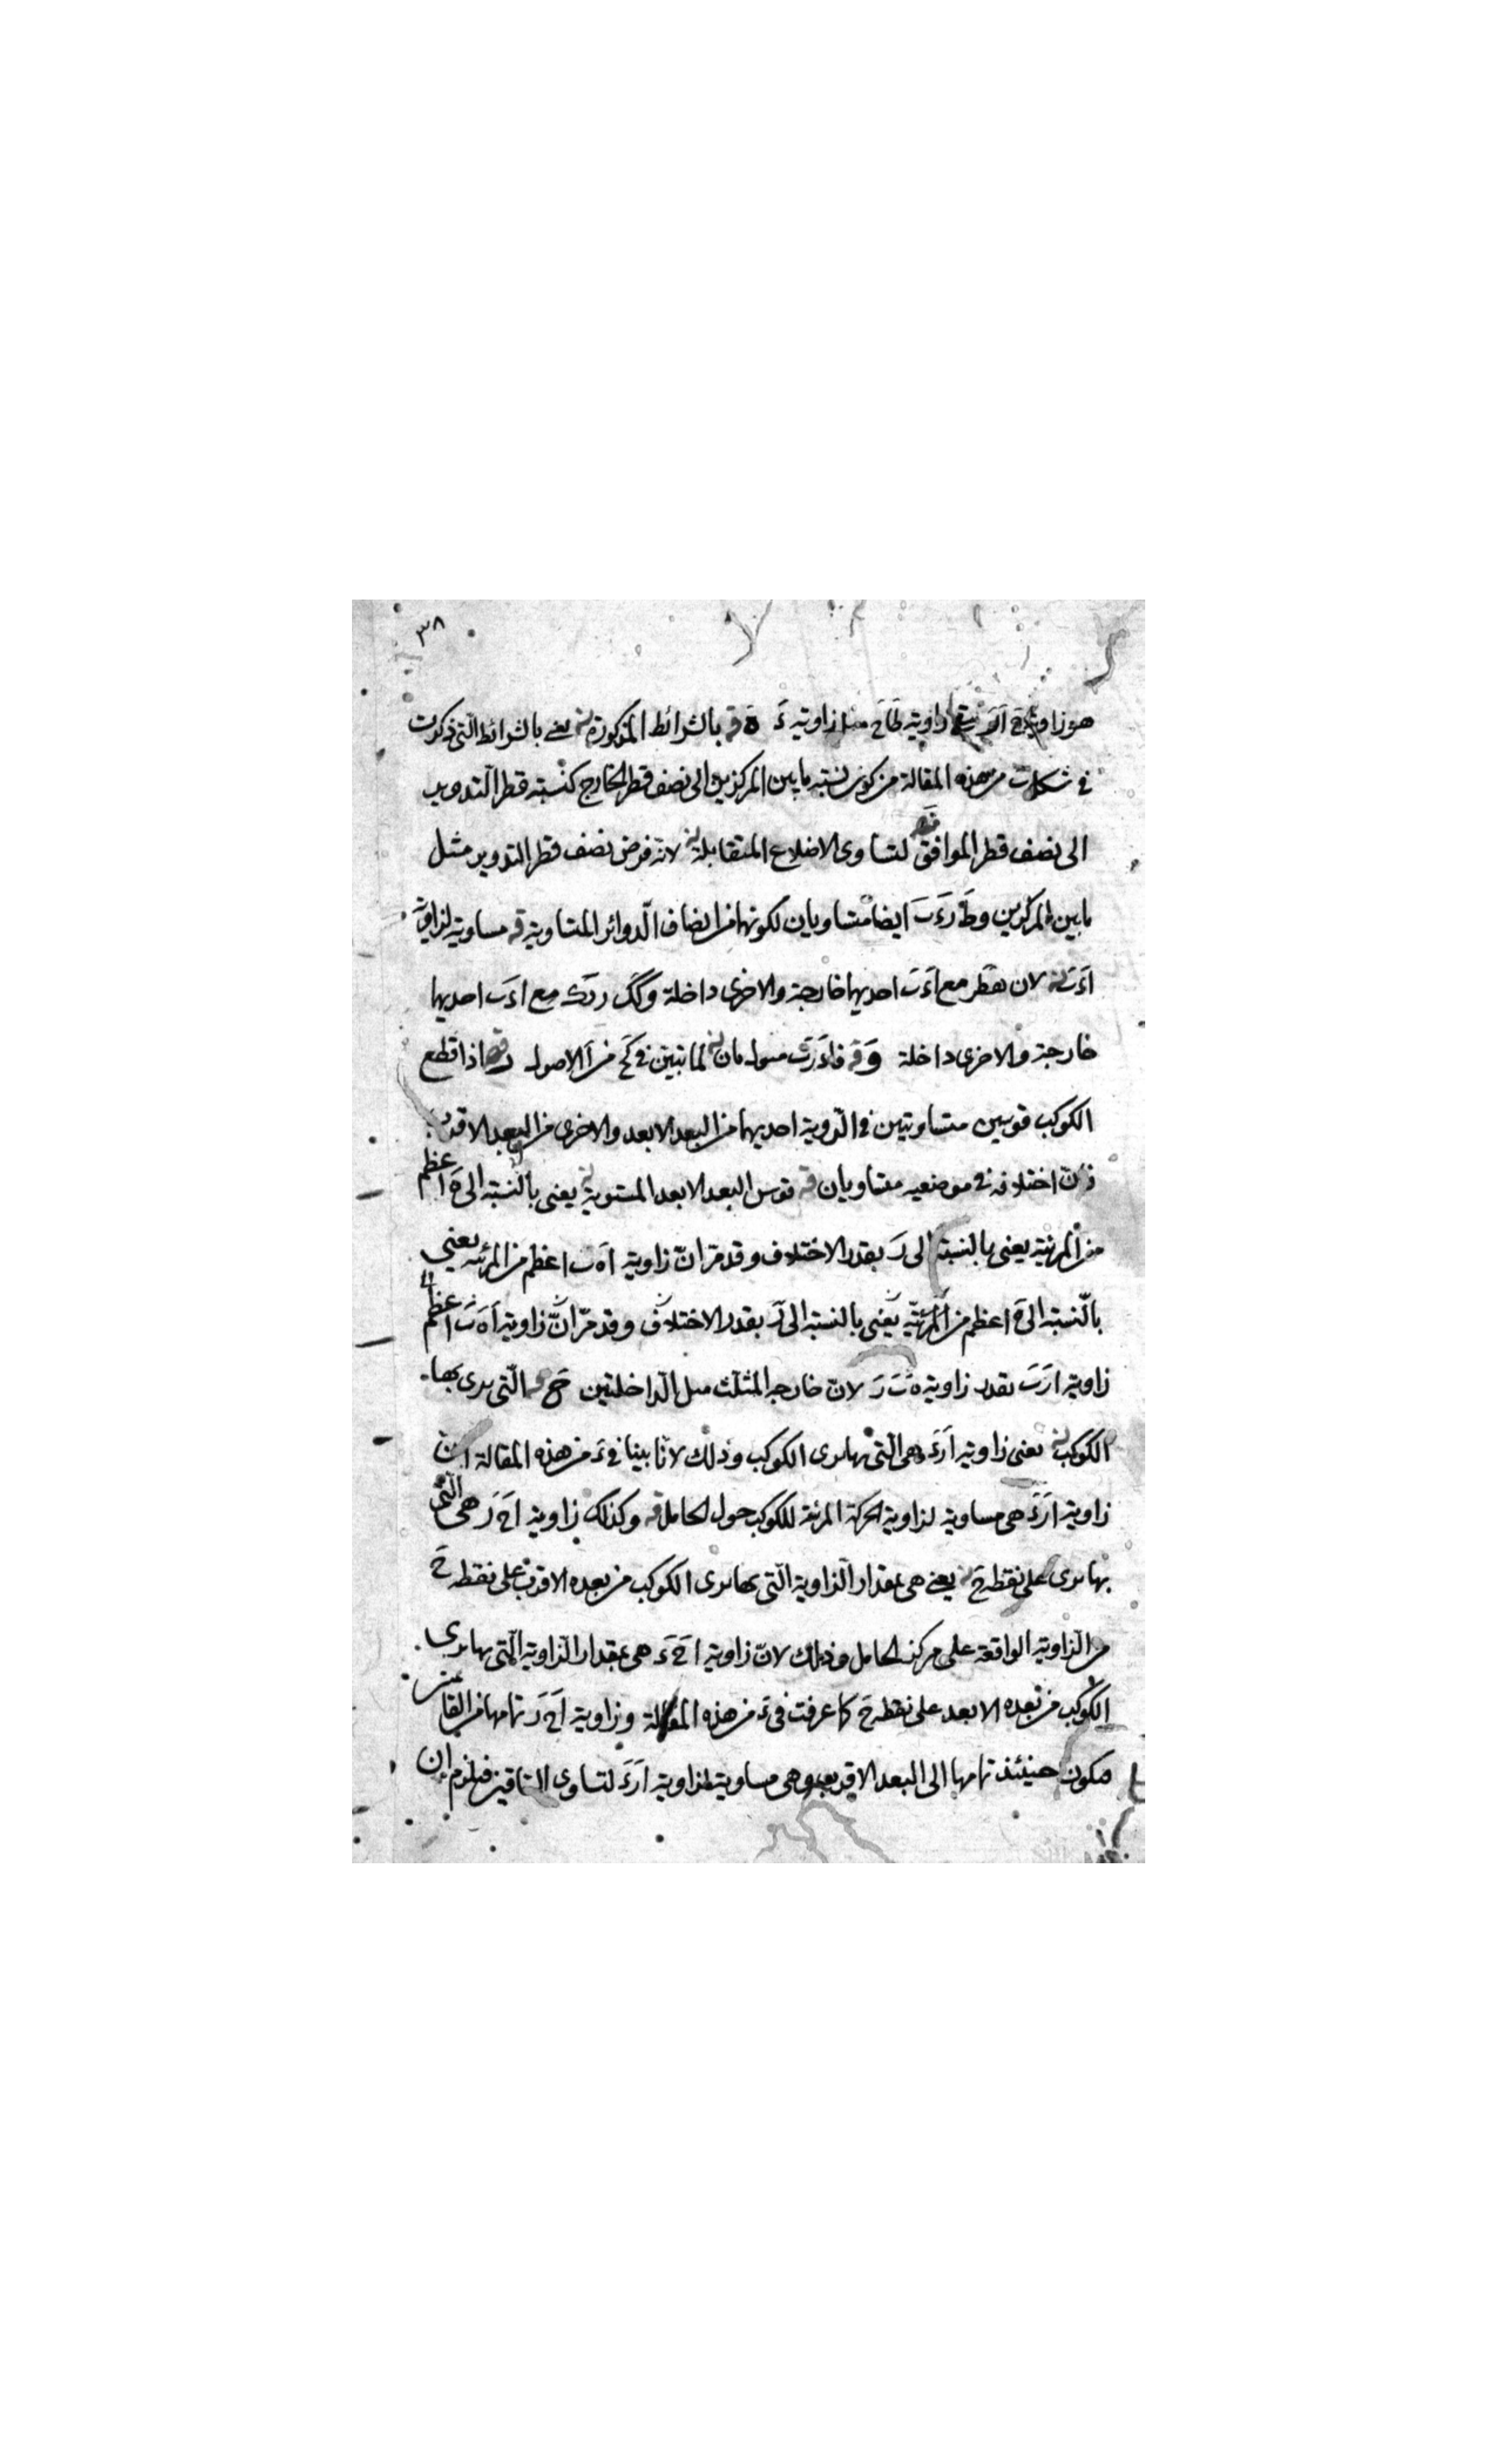 ٣٨
هو زاوية زاوية طاح زاوية ءَ ةَ قه بالشرائط المذكورة يعنى بالشرائط التى ذكرت
فى شكل من هذه المقالة من كون نسبة ما بين المركزين الى نصف قطر الخارج كنسبة قطر التدوير
الى نصف قطر الموافق لتساوى الاضلاع المتقابلة لانه فرض نصف قطر التدوير مثل
ما بين المركزين وطَ رَ ءَ بَ ايضا متساويان لكونهما من انصاف الدوائر المتساوية قه مساوية لزاوية
اَءَبَ لان مع اَءَبَ احديهما خارجة والاخرى داخلة وكك مع اءَبَ احديهما
خارجة والاخرى داخلة وَ قه لما تبين فى كَح من اَ الاصول اذا قطع
الكوكب قوسين متساويتين فى الروية احديهما من البعد الابعد والاخرى من البعد الاقرب
فان اختلافه فى موضعيه متساويان قه قوس البعد الابعد المستوية يعنى بالنسبة الى هَ اعظم
من المرئية يعنى بالنسبة الى رَ بقدر الاختلاف وقد مرّ انّ زاوية اهَ بَ اعظم من المرئية يعنى
بالنسبة الى هَ اعظم من المرئية يعنى بالنسبة الى رَ بقدر الاختلاف وقد مرّ انّ زاوية اَهَ بَ اعظم
زاوية ارَبَ بقدر زاوية هَ بَ رَ لان خارجة المثلث مثل الداخلتين حَ التى يرى بها
الكوكب يعنى زاوية اَرَءَ هى التى بها يرى الكوكب وذلك لانا بينا فى ءَ من هذه المقالة ان
زاوية ارَءَ هى مساوية لزاوية الحركة المرئية للكوكب حول الحامل قه وكذلك زاوية احَ رَ هى التى
بها يرى على نقطة حَ يعنى هى بمقدار الزاوية التى بها يرى الكوكب من بعده الاقرب على نقطة حَ
من الزاوية الواقعة على مركز الحامل وذلك لانّ زاوية احَ ءَ هى بمقدار الزاوية التى بها يرى
الكوكب من بعده الابعد على نقطة حَ كما عرفت فى ءَ من هذه المقالة وزاوية احَ رَ تمامها من القائمتين
فيكون حينئذ تمامها الى البعد الاقرب وهى مساوية لزاوية ارَءَ لتساوى الساقين فيلزم ان